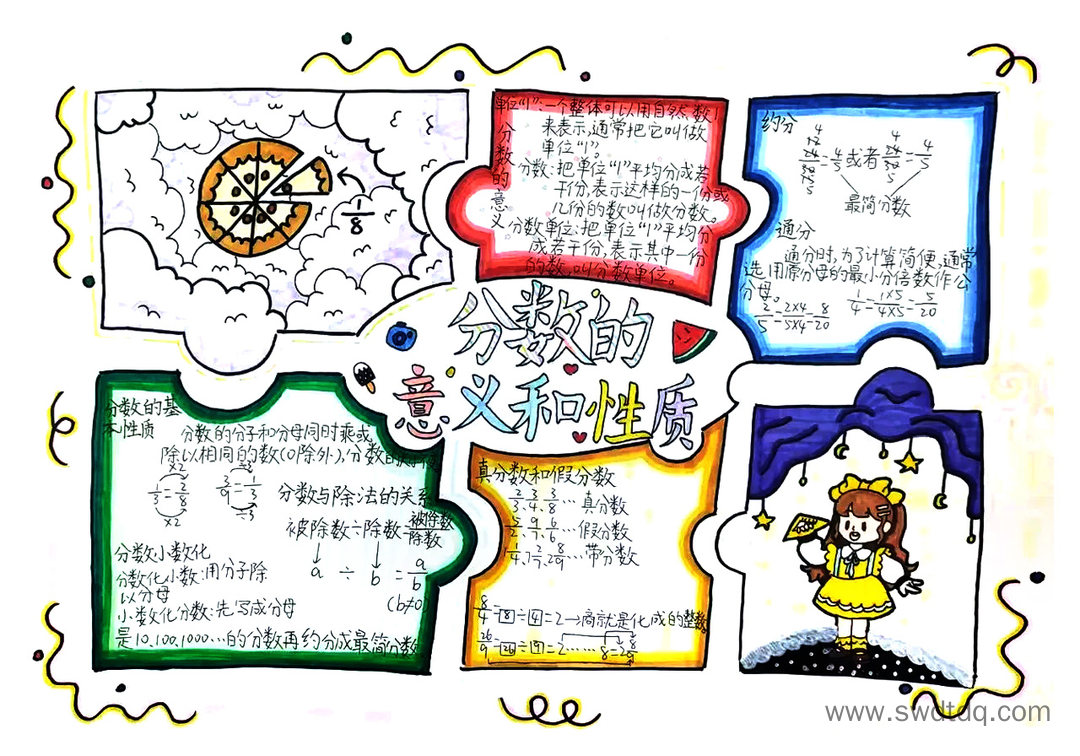 分数的
意义和性质
1/8
分数的意义
单位“1”:一个整体可以用自然数1
来表示,通常把它叫做
单位“1”。
分数:把单位“1”平均分成若
干份,表示这样的一份或
几份的数叫做分数。
分数单位:把单位“1”平均分
成若干份,表示其中一份
的数,叫分数单位。
约分
4
12
24/30=4/5或者24/30=4/5
15
5
最简分数
通分
通分时,为了计算简便,通常
选用原分母的最小公倍数作公
分母。
2/5=2×4/5×4=8/20 1/4=1×5/4×5=5/20
分数的基
本性质
分数的分子和分母同时乘或
除以相同的数(0除外),分数的
×2 ÷3
3/9=1/3
×2 ÷3
分数与除法的关系
被除数÷除数=被除数/除数
a ÷ b =a/b
(b≠0)
分数小数化
分数化小数:用分子除
以分母
小数化分数:先写成分母
是10.100.1000…的分数再约分成最简分数
真分数和假分数
2/3、3/4、3/8…真分数
5/2、9/7、6/6…假分数
…带分数
8/4=8÷4=2→商就是化成的整数
26/9=26÷9=2……8=2 8/9
www.swdtdq.com